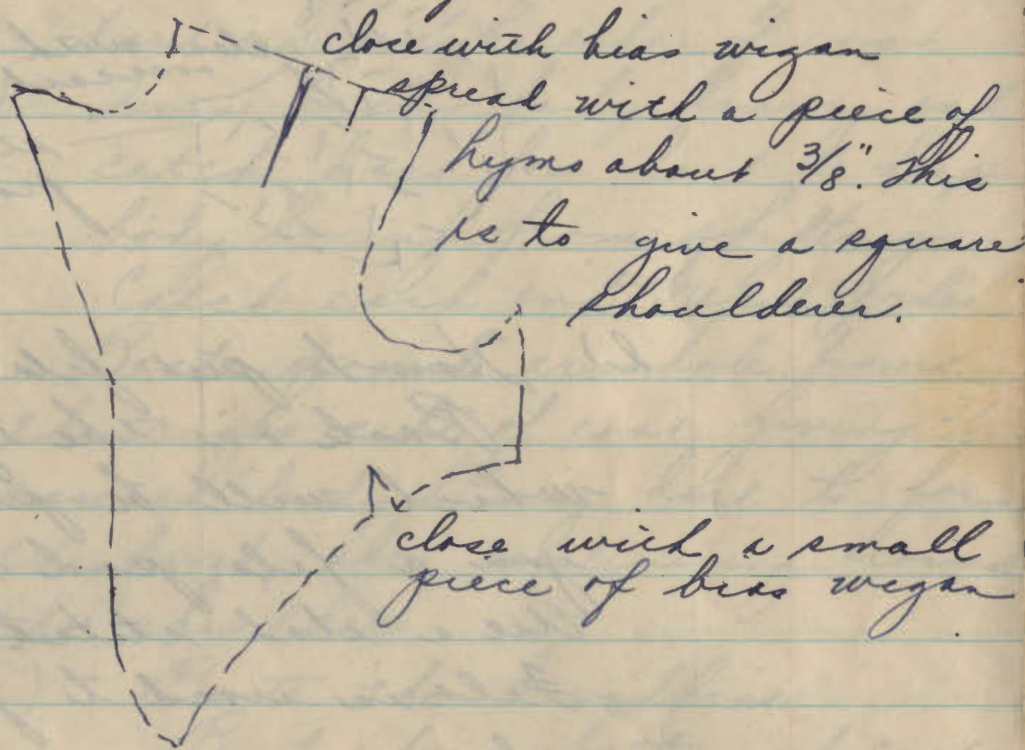 close with bias wigan
spread with a piece of
hymo about 3/8". This
is to give a square
shoulderer.
close with a small
piece of bias wigan